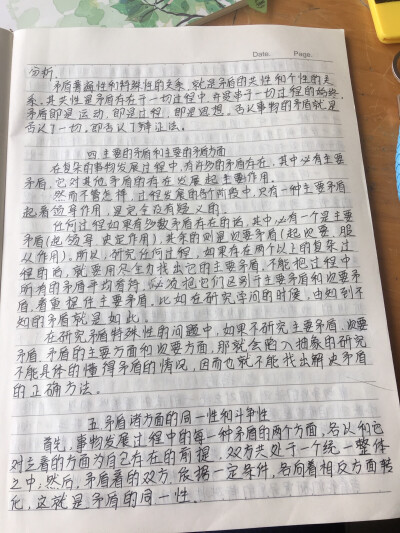 Date. Page.
分析。
矛盾普遍性和特殊性的关系，就是矛盾的共性和个性的关
系。其共性是矛盾存在于一切过程中，并贯串于一切过程的始终，
矛盾即是运动，即是过程，即是思想。否认事物的矛盾就是
否认了一切，即否认了辩证法。
四 主要的矛盾和主要的矛盾方面
在复杂的事物发展过程中，有许多的矛盾存在，其中必有主要
矛盾，它对其他矛盾的存在发展起主要作用。
然而不管怎样，过程发展的各个阶段中，只有一种主要矛盾
起着领导作用，是完全没有疑义的。
任何过程如果有多数矛盾存在的话，其中必有一个是主要
矛盾（起领导，决定作用），其余的则是次要矛盾（起次要，服
从作用）。所以，研究任何过程，如果存在两个以上的复杂过
程的话，就要用尽全力找出它的主要矛盾，不能把过程中
所有的矛盾平均看待，必须把它们区别于主要矛盾和次要矛
盾，着重捉住主要矛盾，比如在研究学问的时候，由知到不
知的矛盾就是如此。
在研究矛盾特殊性的问题中，如果不研究主要矛盾，次要
矛盾，矛盾的主要方面和次要方面，那就会陷入抽象的研究
不能具体的懂得矛盾的情况，因而也就不能找出解决矛盾
的正确方法。
五 矛盾诸方面的同一性和斗争性
首先，事物发展过程中的每一种矛盾的两个方面，各以和它
对立着的方面为自己存在的前提，双方共处于一个统一整体
之中；然后，矛盾着的双方，依据一定条件，各向着相反方面转
化，这就是矛盾的同一性。